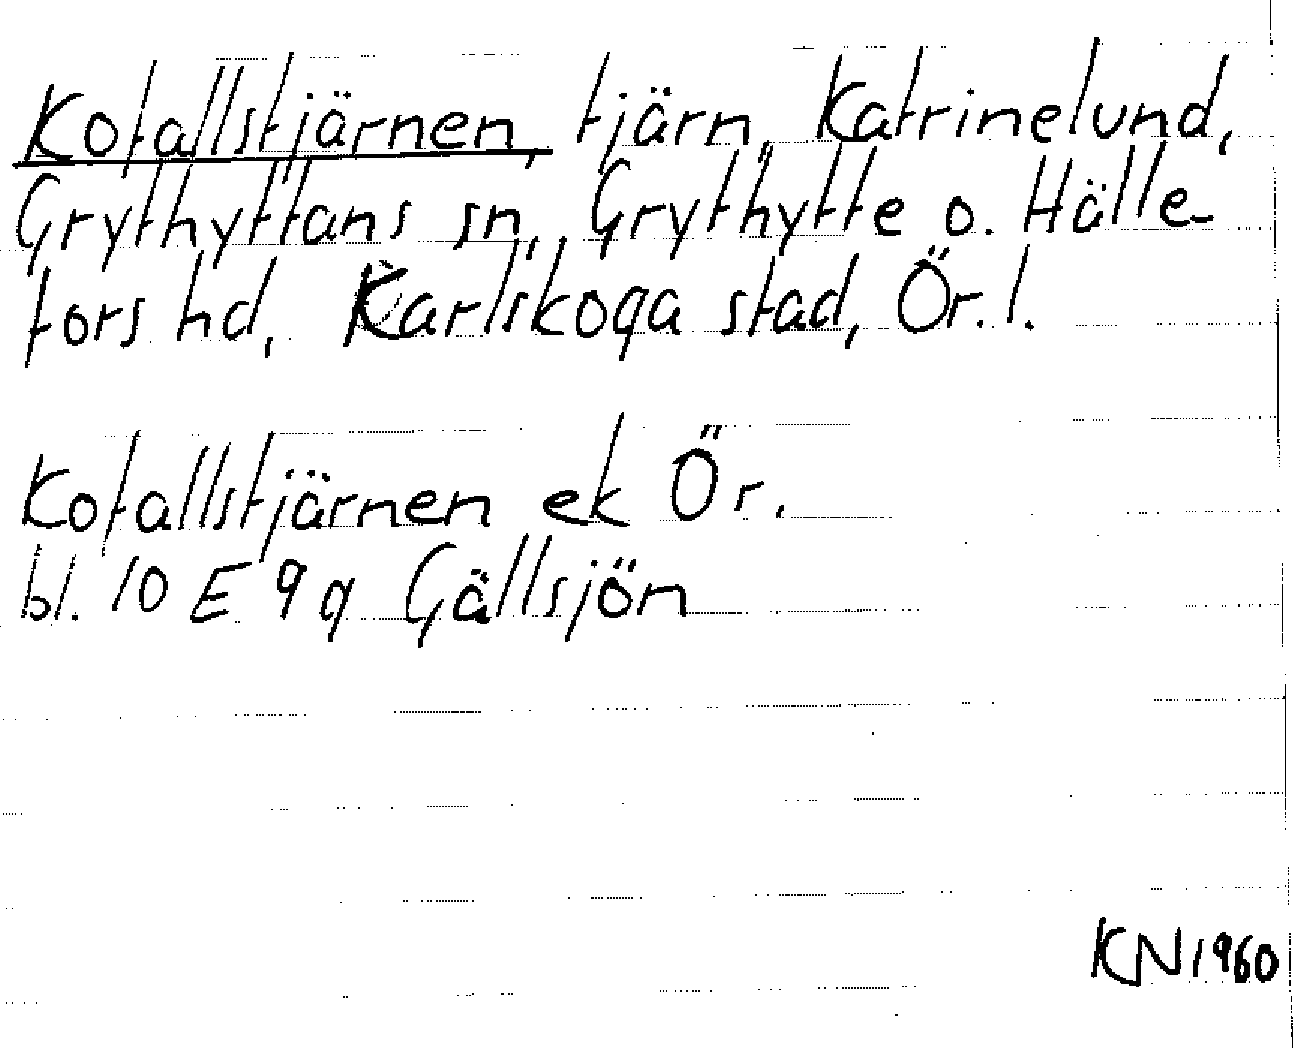 Kofallstjärnen, tjärn, Katrinelund,
Grythyttans sn, Grythytte o. Hälle-
fors hd, Karlskoga stad, Ör. l.
Kofallstjärnen ek Ör.
bl. 10 E 9 g Gällsjön
KN 1960